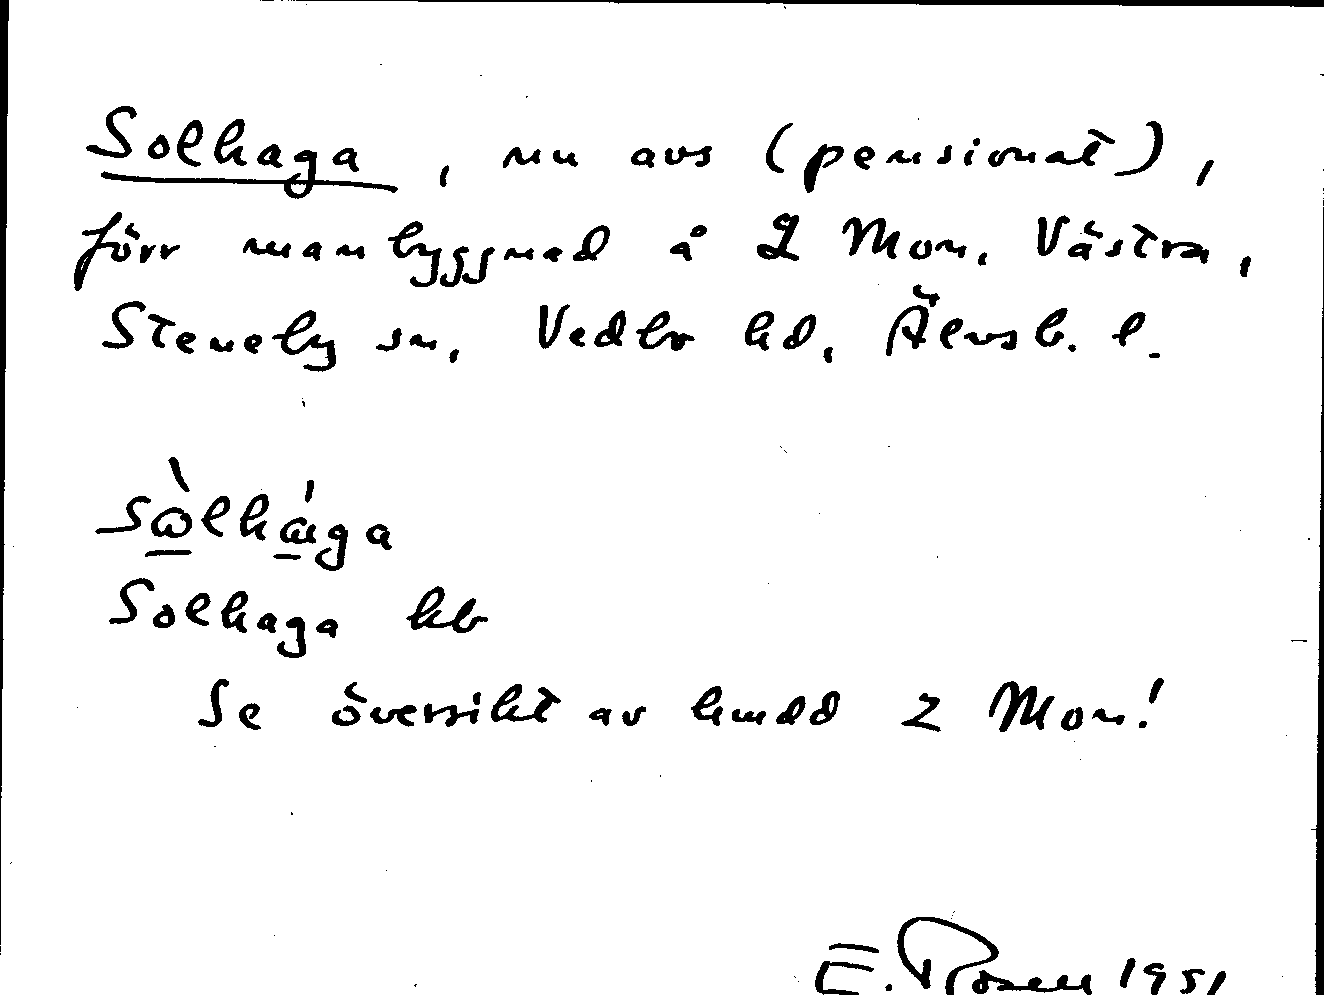 Solhaga, nu avs (pensionat),
förr manbyggnad å 2 Mon, Västra,
Steneby sn, Vedbo hd, Älvsb. l.
sὼlhág̀a
Solhaga kb
Se översikt av hmdd 2 Mon!
E. Rosen 1951